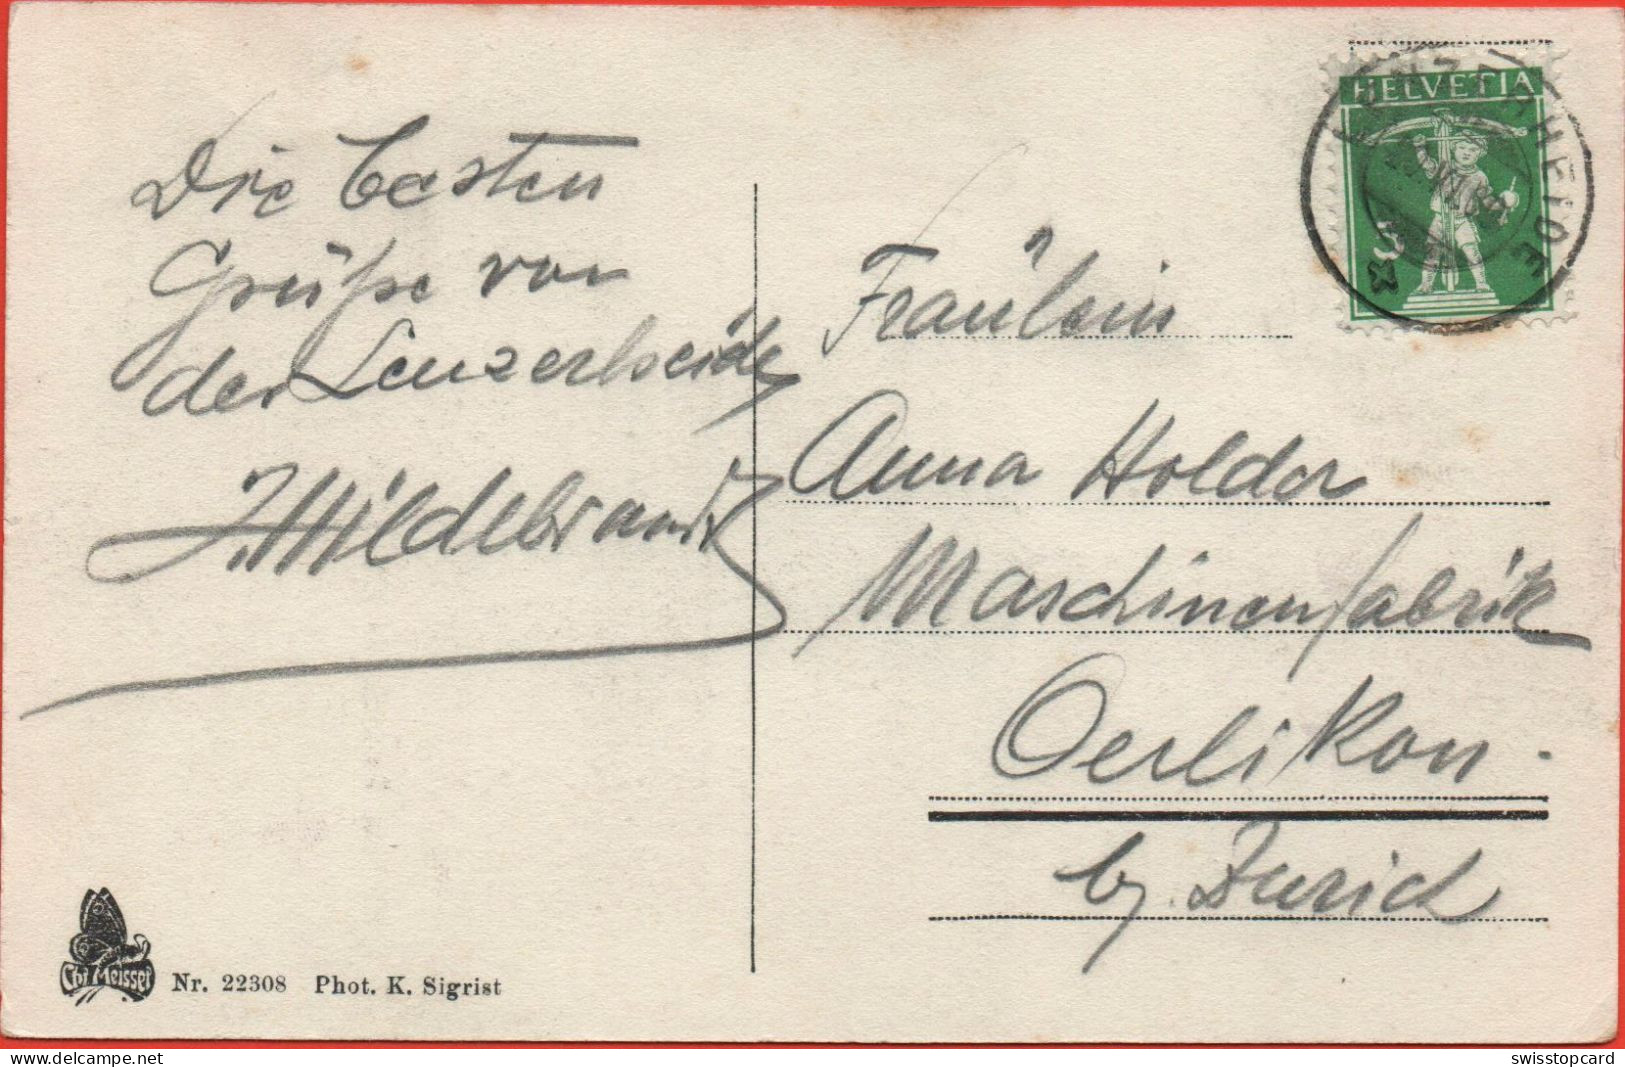 Die besten
Grüße von
der Lenzerheide
J. Hildebrandt
HELVETIA
LENZERHEIDE
5
Fräulein
Anna Holder
Maschinenfabrik
Oerlikon.
by. Zürich
Chr. Meisser
Nr. 22308 Phot. K. Sigrist
delcampe.net
swisstopcard